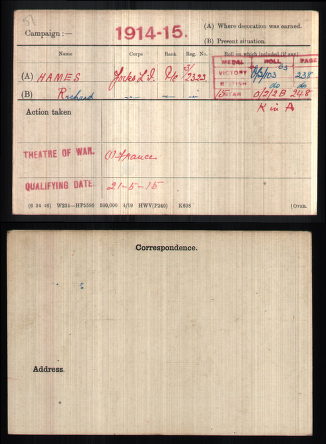 51
Campaign :— 1914-15.
(A) Where decoration was earned.
(B) Present situation.
Name Corps Rank Reg. No. Roll on which included (if any)
MEDAL ROLL PAGE
(A) HAMES Yorks L.I. Pte 3/1333
VICTORY 238
BRITISH do do
(B) Richard
15 STAR O/2/2B 248
Action taken
K in A
THEATRE OF WAR. (1) France
QUALIFYING DATE. 21-5-15
(6 34 46) W234—HP5590 500,000 4/19 HWV(P240) K608
[Over.
Correspondence.
Address.